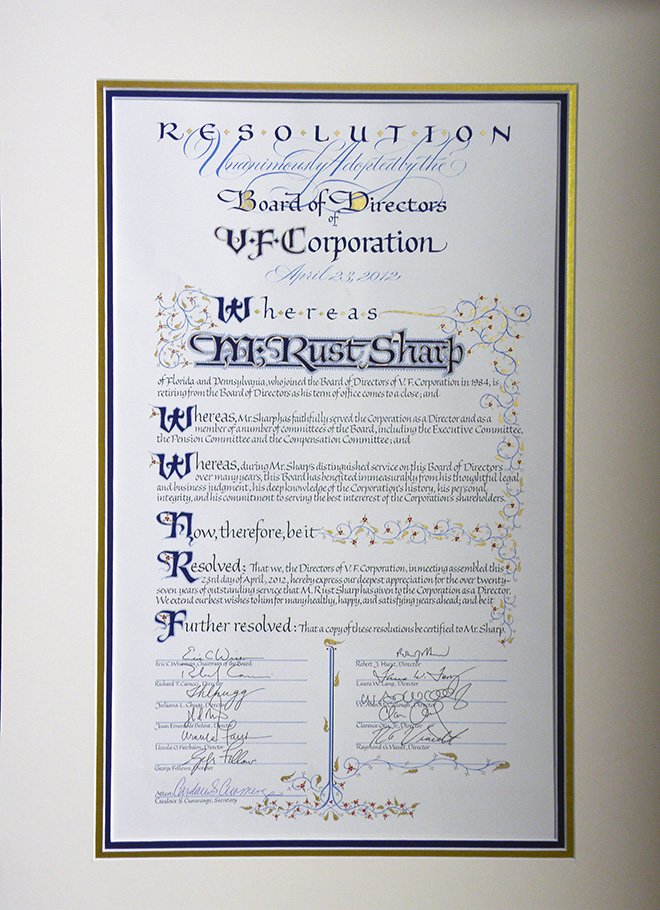 RESOLUTION
Unanimously Adopted by the
Board of Directors
of
V·F·Corporation
April 23, 2012
Whereas
M. Rust Sharp
of Florida and Pennsylvania, who joined the Board of Directors of V. F. Corporation in 1984, is
retiring from the Board of Directors as his term of office comes to a close; and
Whereas, Mr. Sharp has faithfully served the Corporation as a Director and as a
member of a number of committees of the Board, including the Executive Committee,
the Pension Committee and the Compensation Committee; and
Whereas, during Mr. Sharp's distinguished service on this Board of Directors
over many years, this Board has benefited immeasurably from his thoughtful legal
and business judgment, his deep knowledge of the Corporation's history, his personal
integrity, and his commitment to serving the best intererest of the Corporation's shareholders.
Now, therefore, be it
Resolved: That we, the Directors of V. F. Corporation, in meeting assembled this
23rd day of April, 2012, hereby express our deepest appreciation for the over twenty-
seven years of outstanding service that M. Rust Sharp has given to the Corporation as a Director.
We extend our best wishes to him for many healthy, happy, and satisfying years ahead; and be it
Further resolved: That a copy of these resolutions be certified to Mr. Sharp.
Eric C. Wiseman, Chairman of the Board
Robert J. Hurst, Director
Richard T. Carucci, Director
Laura W. Lang, Director
Juliana L. Chugg, Director
Director
Juan Ernesto de Bedout, Director
Clarence Otis, Jr., Director
Ursula O. Fairbairn, Director
Raymond G. Viault, Director
George Fellows, Director
Attest:
Candace S. Cummings, Secretary